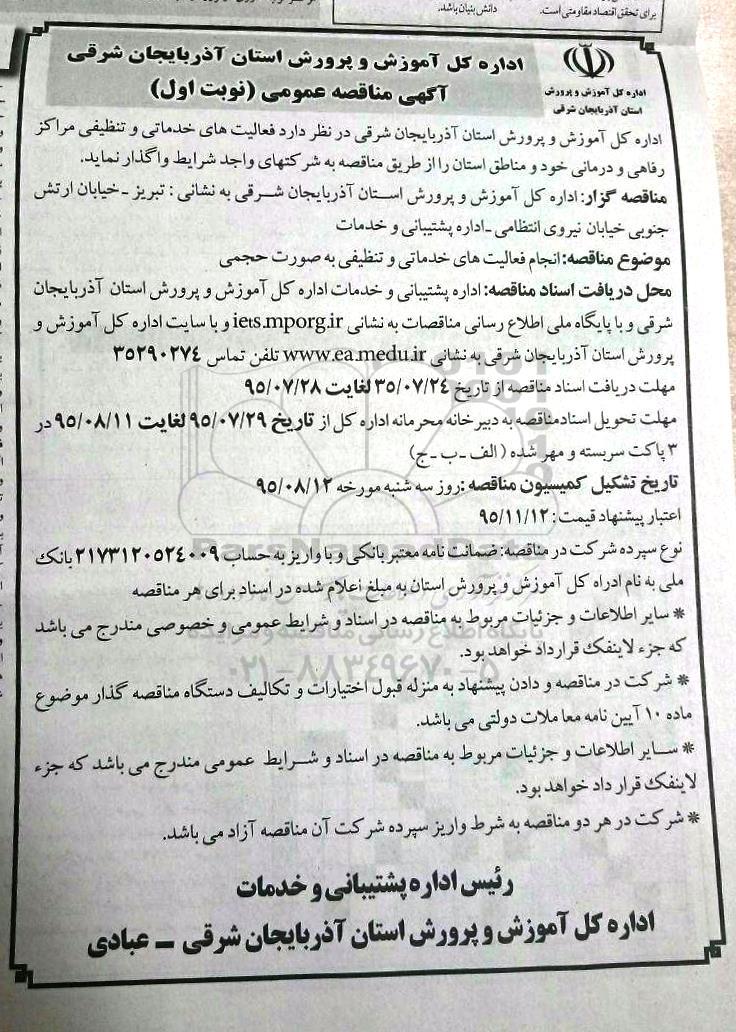 برای تحقق اقتصاد مقاومتی است.
دانش بنیان باشد.
اداره کل آموزش و پرورش
استان آذربایجان شرقی
اداره کل آموزش و پرورش استان آذربایجان شرقی
آگهی مناقصه عمومی (نوبت اول)
اداره کل آموزش و پرورش استان آذربایجان شرقی در نظر دارد فعالیت های خدماتی و تنظیفی مراکز
رفاهی و درمانی خود و مناطق استان را از طریق مناقصه به شرکتهای واجد شرایط واگذار نماید.
مناقصه گزار: اداره کل آموزش و پرورش استان آذربایجان شرقی به نشانی : تبریز ـ خیابان ارتش
جنوبی خیابان نیروی انتظامی ـ اداره پشتیبانی و خدمات
موضوع مناقصه: انجام فعالیت های خدماتی و تنظیفی به صورت حجمی
محل دریافت اسناد مناقصه: اداره پشتیبانی و خدمات اداره کل آموزش و پرورش استان آذربایجان
شرقی و با پایگاه ملی اطلاع رسانی مناقصات به نشانی iets.mporg.ir و با سایت اداره کل آموزش و
پرورش استان آذربایجان شرقی به نشانی www.ea.medu.ir تلفن تماس ۳۵۲۹۰۲۷۴
مهلت دریافت اسناد مناقصه از تاریخ ۳۵/۰۷/۲۴ لغایت ۹۵/۰۷/۲۸
مهلت تحویل اسناد مناقصه به دبیرخانه محرمانه اداره کل از تاریخ ۹۵/۰۷/۲۹ لغایت ۹۵/۰۸/۱۱ در
۳ پاکت سربسته و مهر شده ( الف ـ ب ـ ج)
تاریخ تشکیل کمیسیون مناقصه : روز سه شنبه مورخه ۹۵/۰۸/۱۲
اعتبار پیشنهاد قیمت : ۹۵/۱۱/۱۲
نوع سپرده شرکت در مناقصه: ضمانت نامه معتبر بانکی و با واریز به حساب ۲۱۷۳۱۲۰۵۲۴۰۰۹ بانک
ملی به نام ادراه کل آموزش و پرورش استان به مبلغ اعلام شده در اسناد برای هر مناقصه
* سایر اطلاعات و جزئیات مربوط به مناقصه در اسناد و شرایط عمومی و خصوصی مندرج می باشد
که جزء لاینفک قرارداد خواهد بود.
* شرکت در مناقصه و دادن پیشنهاد به منزله قبول اختیارات و تکالیف دستگاه مناقصه گذار موضوع
ماده ۱۰ آیین نامه معاملات دولتی می باشد.
* سایر اطلاعات و جزئیات مربوط به مناقصه در اسناد و شرایط عمومی مندرج می باشد که جزء
لاینفک قرار داد خواهد بود.
* شرکت در هر دو مناقصه به شرط واریز سپرده شرکت آن مناقصه آزاد می باشد.
رئیس اداره پشتیبانی و خدمات
اداره کل آموزش و پرورش استان آذربایجان شرقی ـ عبادی
ParsNamadData
پایگاه اطلاع رسانی مناقصه و مزایده
۰۲۱-۸۸۳۴۹۶۷۰-۵